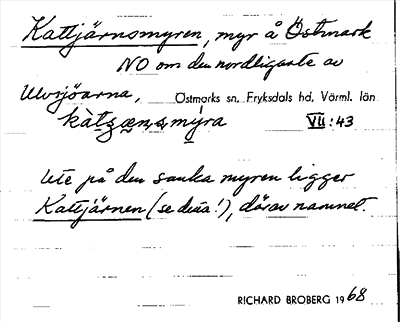 Kattjärnomyren, myr å Östmark
NO om den nordligaste av
Ulvsjöarna, Östmarks sn, Fryksdals hd, Värml. län
VII:43
Ute på den sanka myren ligger
Kattjärnen (se dessa!), därav namnet.
RICHARD BROBERG 1968